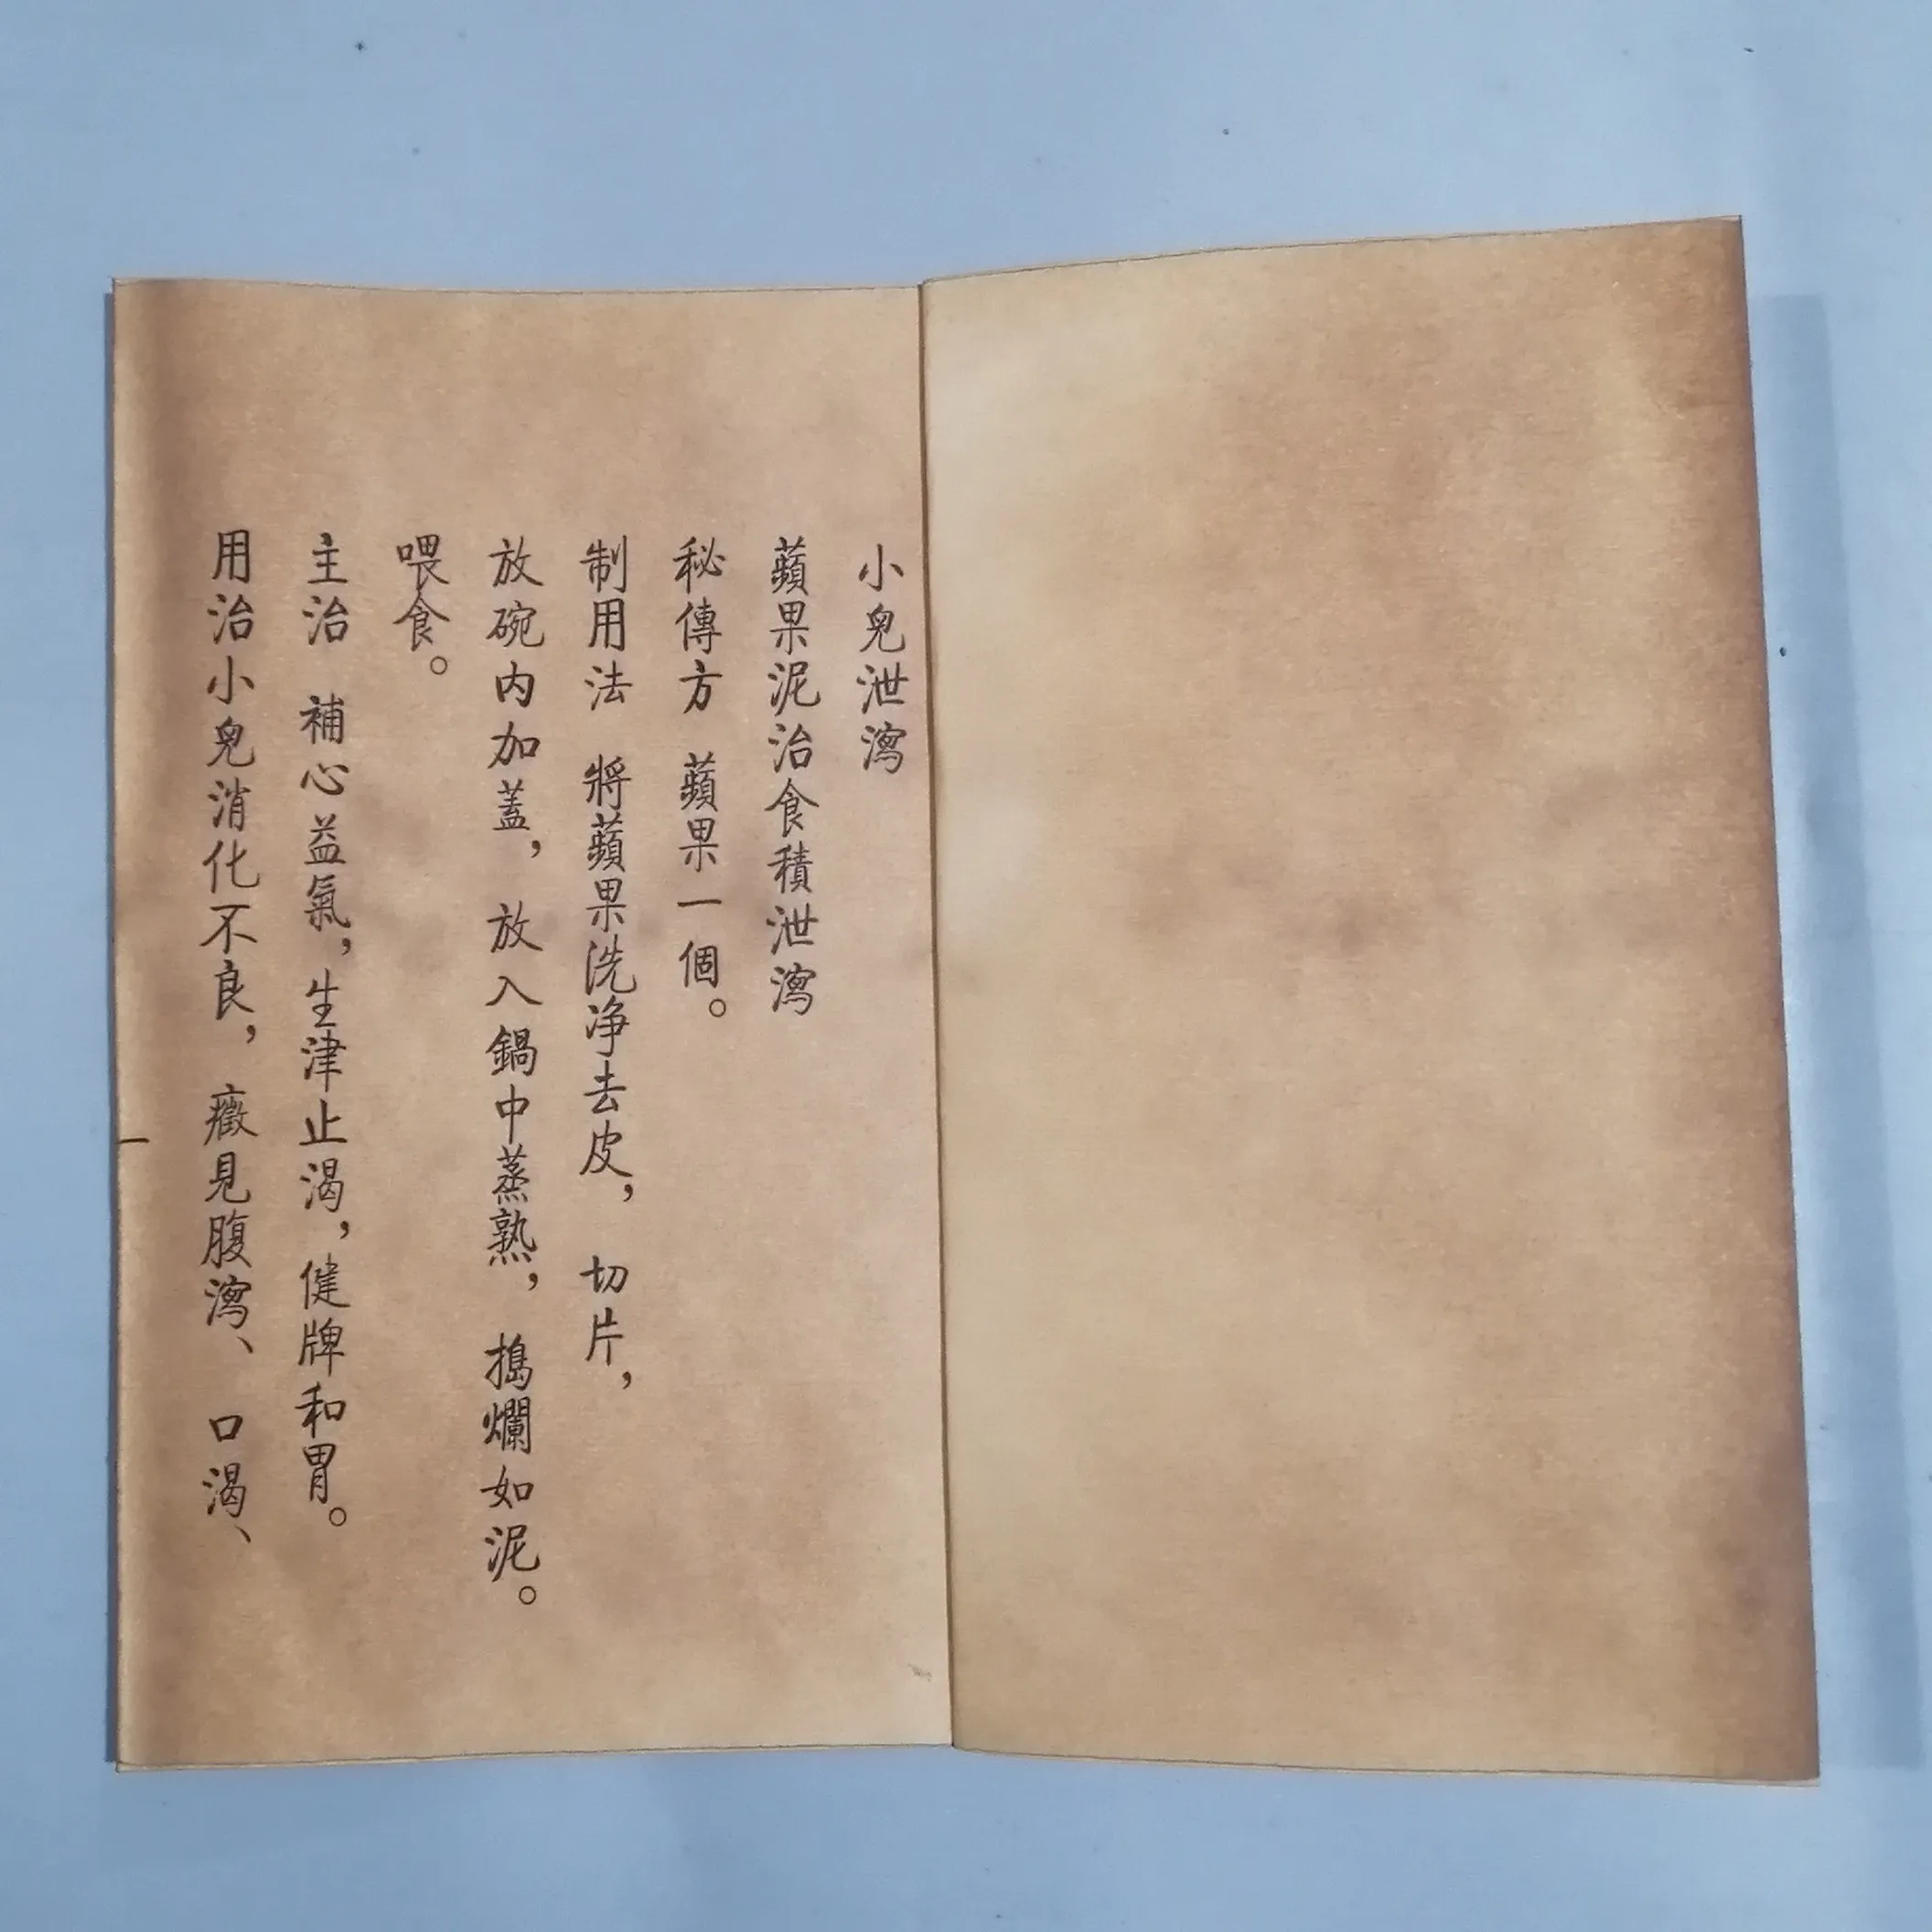 小兒泄瀉
蘋果泥治食積泄瀉
秘傳方 蘋果一個。
制用法 將蘋果洗净去皮，切片，
放碗内加蓋，放入鍋中蒸熟，搗爛如泥。
喂食。
主治 補心益氣，生津止渴，健牌和胃。
用治小兒消化不良，癥見腹瀉、口渴、
一